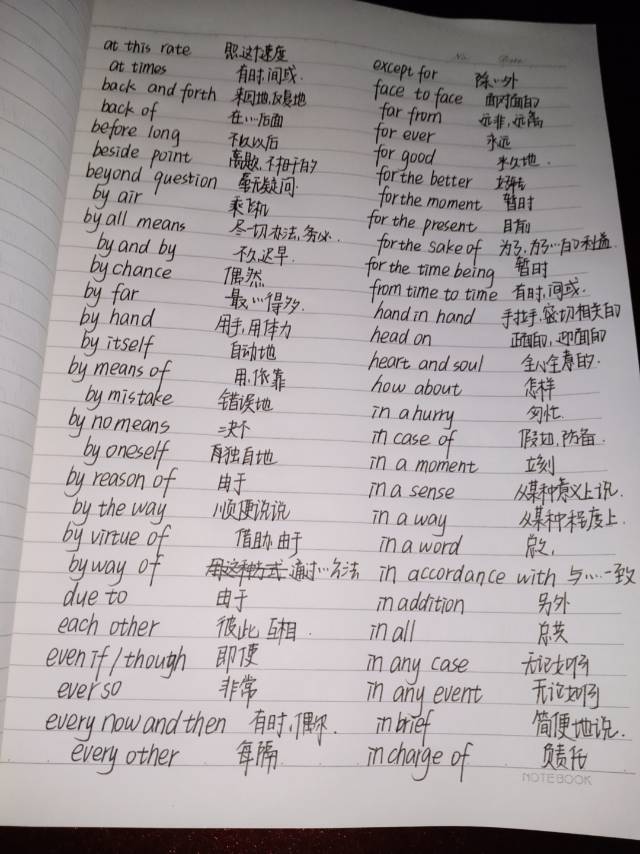 No. Date.
at this rate 照这个速度
at times 有时,间或.
back and forth 来回地,反复地
back of 在…后面
before long 不久以后
beside point 离题,不相干的
beyond question 毫无疑问.
by air 乘飞机
by all means 尽一切办法,务必.
by and by 不久,迟早.
by chance 偶然
by far 最…得多.
by hand 用手,用体力
by itself 自动地
by means of 用,依靠
by mistake 错误地
by no means 决不
by oneself 单独自地
by reason of 由于
by the way 顺便说说
by virtue of 借助,由于
by way of 通过…方法
due to 由于
each other 彼此,互相.
even if / though 即使
ever so 非常
every now and then 有时,偶尔.
every other 每隔
except for 除…外
face to face 面对面的
far from 远非,远离
for ever 永远
for good 永久地.
for the better 好转
for the moment 暂时
for the present 目前
for the sake of 为了,为了…的利益.
for the time being 暂时
from time to time 有时,间或.
hand in hand 手拉手,密切相关的
head on 正面的,迎面的
heart and soul 全心全意的.
how about 怎样
in a hurry 匆忙.
in case of 假如,防备.
in a moment 立刻
in a sense 从某种意义上说.
in a way 从某种程度上.
in a word 总之,
in accordance with 与…一致
in addition 另外
in all 总共
in any case 无论如何
in any event 无论如何
in brief 简便地说.
in charge of 负责
NOTEBOOK